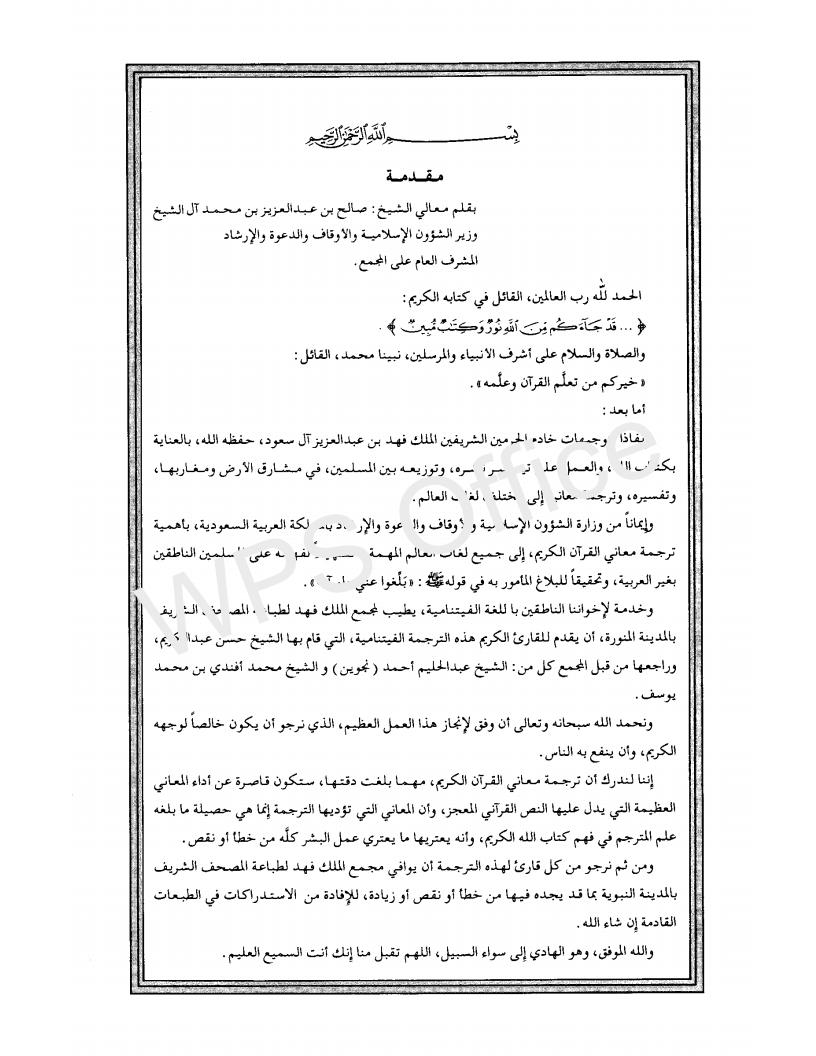 بِسْــــــــمِ ٱللَّهِ ٱلرَّحْمَٰنِ ٱلرَّحِيمِ
مـقـدمـة
بقلم معالي الشيخ: صالح بن عبدالعزيز بن محمد آل الشيخ
وزير الشؤون الإسلامية والأوقاف والدعوة والإرشاد
المشرف العام على المجمع.
الحمد لله رب العالمين، القائل في كتابه الكريم:
﴿ ... قَدْ جَآءَكُم مِّنَ ٱللَّهِ نُورٌ وَكِتَٰبٌ مُّبِينٌ ﴾ .
والصلاة والسلام على أشرف الأنبياء والمرسلين، نبينا محمد، القائل:
«خيركم من تعلَّم القرآن وعلَّمه» .
أما بعد:
خادم الحرمين الشريفين الملك فهد بن عبدالعزيز آل سعود، حفظه الله، بالعناية
والعمل على وتوزيعه بين المسلمين، في مشارق الأرض ومغاربها،
وتفسيره، وترجمة معانيه إلى مختلف لغات العالم.
وإيماناً من وزارة الشؤون الإسلامية والأوقاف والدعوة والإرشاد بالمملكة العربية السعودية، بأهمية
ترجمة معاني القرآن الكريم، إلى جميع لغات العالم المهمة على المسلمين الناطقين
بغير العربية، وتحقيقاً للبلاغ المأمور به في قوله ﷺ : «بَلِّغوا عني ولو آية» .
وخدمة لإخواننا الناطقين با للغة الفيتنامية، يطيب لمجمع الملك فهد لطباعة المصحف الشريف
بالمدينة المنورة، أن يقدم للقارئ الكريم هذه الترجمة الفيتنامية، التي قام بها الشيخ حسن عبدالكريم،
وراجعها من قبل المجمع كل من: الشيخ عبدالحليم أحمد (نجوين) و الشيخ محمد أفندي بن محمد
يوسف .
ونحمد الله سبحانه وتعالى أن وفق لإنجاز هذا العمل العظيم، الذي نرجو أن يكون خالصاً لوجهه
الكريم، وأن ينفع به الناس.
إننا لندرك أن ترجمة معاني القرآن الكريم، مهما بلغت دقتها، ستكون قاصرة عن أداء المعاني
العظيمة التي يدل عليها النص القرآني المعجز، وأن المعاني التي تؤديها الترجمة إنما هي حصيلة ما بلغه
علم المترجم في فهم كتاب الله الكريم، وأنه يعتريها ما يعتري عمل البشر كلَّه من خطأ أو نقص .
ومن ثم نرجو من كل قارئ لهذه الترجمة أن يوافي مجمع الملك فهد لطباعة المصحف الشريف
بالمدينة النبوية بما قد يجده فيها من خطأ أو نقص أو زيادة، للإفادة من الاستدراكات في الطبعات
القادمة إن شاء الله .
والله الموفق، وهو الهادي إلى سواء السبيل، اللهم تقبل منا إنك أنت السميع العليم .
WPS Office